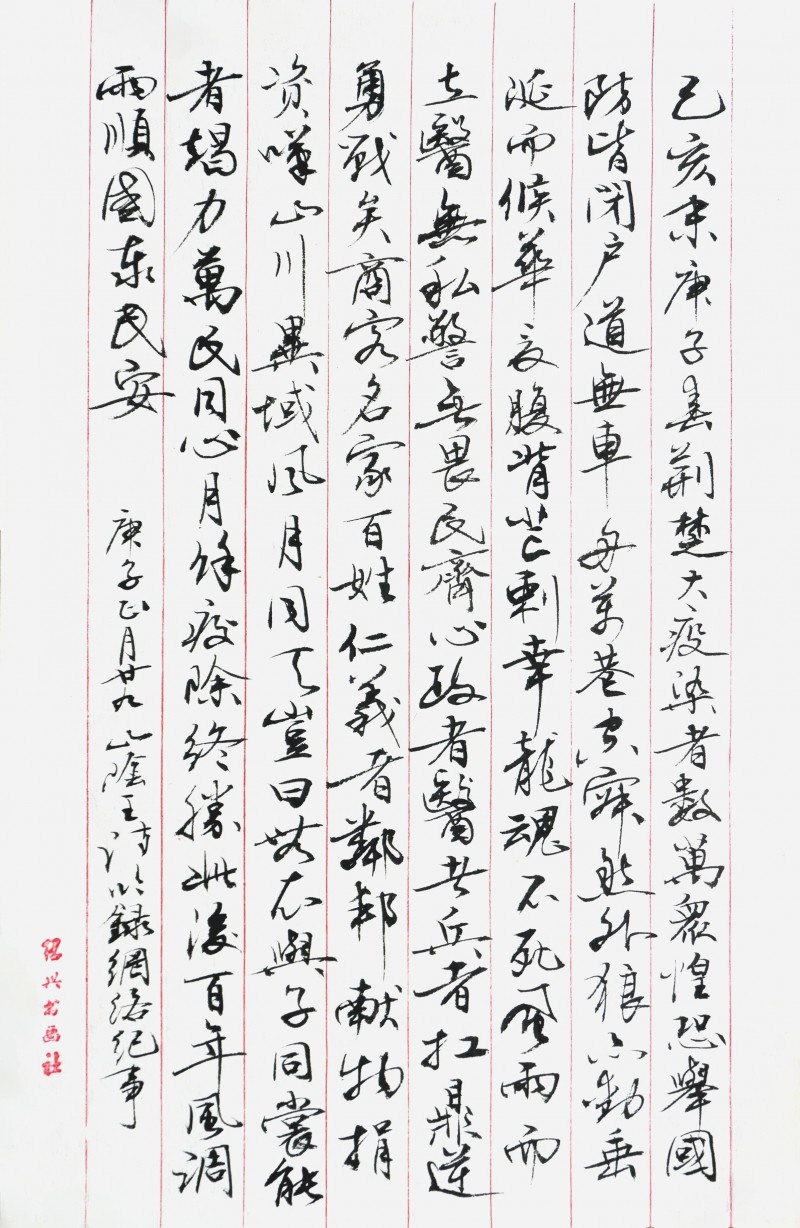 己亥末庚子春荆楚大疫染者数萬眾惶恐舉國
防皆閉户道無車舟万巷空寂然外狼亦動垂
涎而候華夏腹背芒刺幸龍魂不死風雨而
立醫無私警无畏民齊心政者醫者兵者扛鼎逆
勇戰矣商客名家百姓仁義者鄰邦献物捐
资嘆山川異域風月同天豈曰无衣與子同裳能
者竭力萬民同心月餘疫除終勝此後百年風調
雨順國泰民安
庚子正月廿九山陰王錄網絡纪事
绍兴书画社